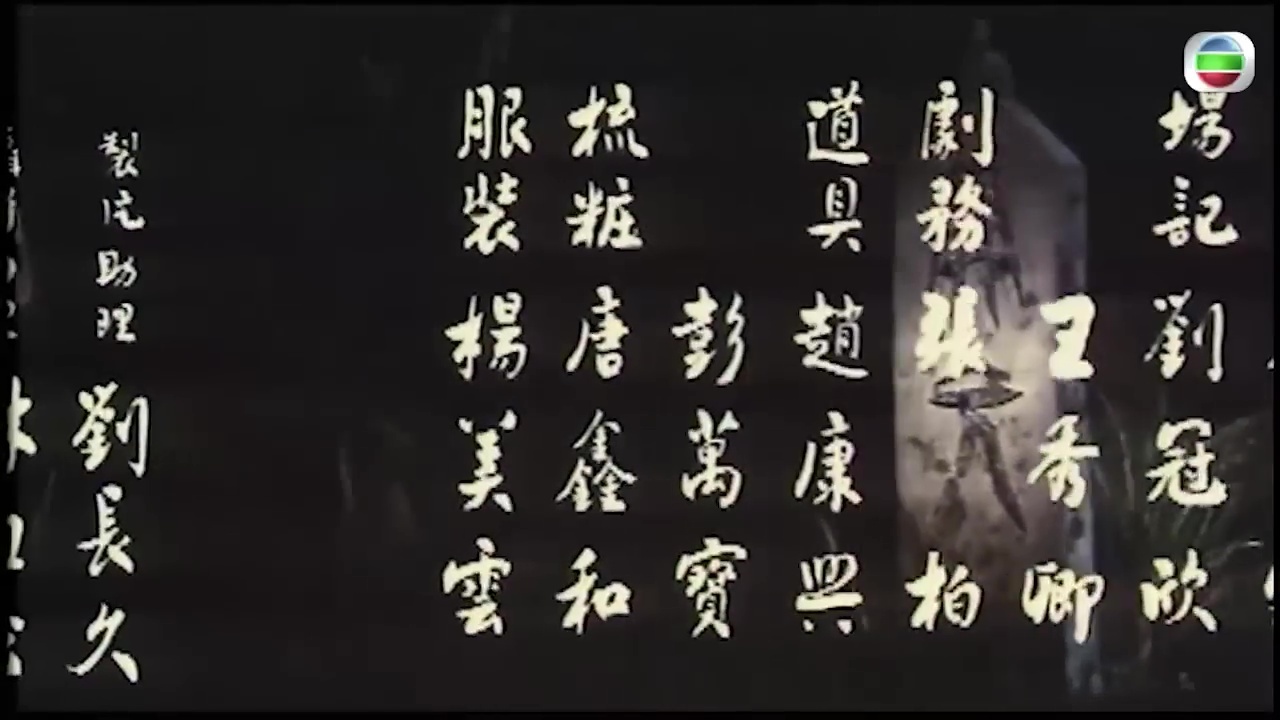 場記 劉冠欣
王秀卿
劇務 張柏
道具 趙康興
彭萬寶
梳粧 唐鑫和
服裝 楊美雲
製片助理 劉長久